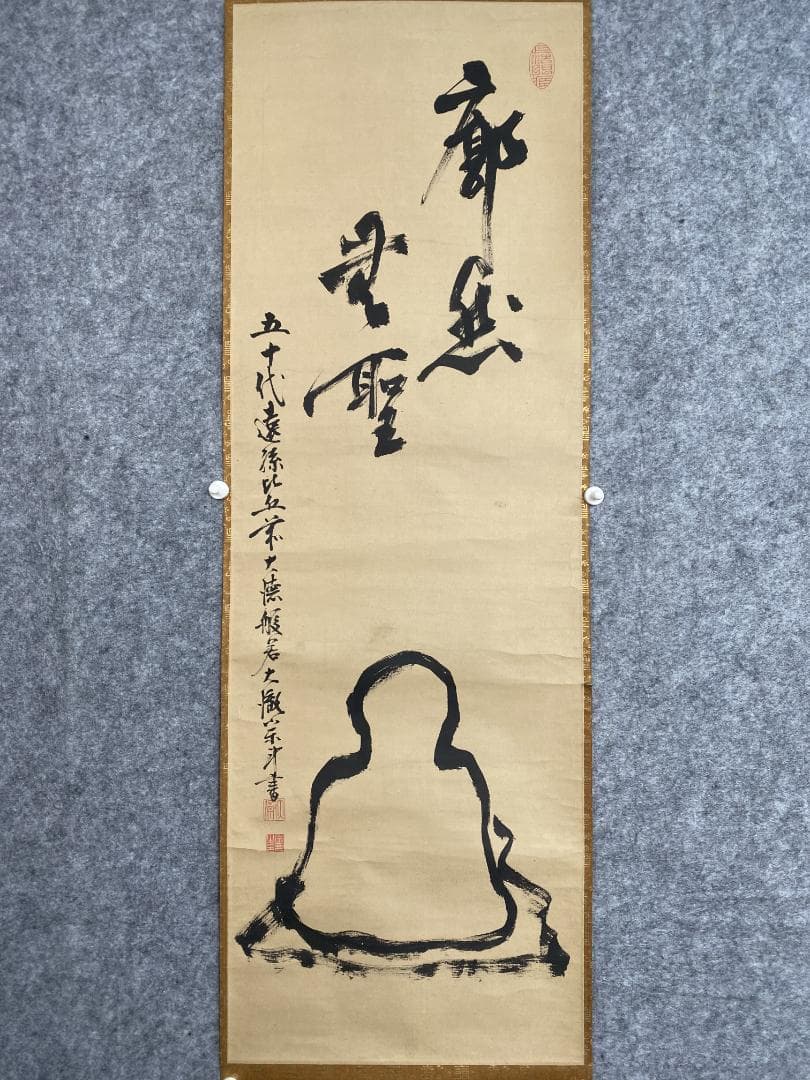 廓然
無聖
五十代遠孫比丘前大德般若大徹宗斗書